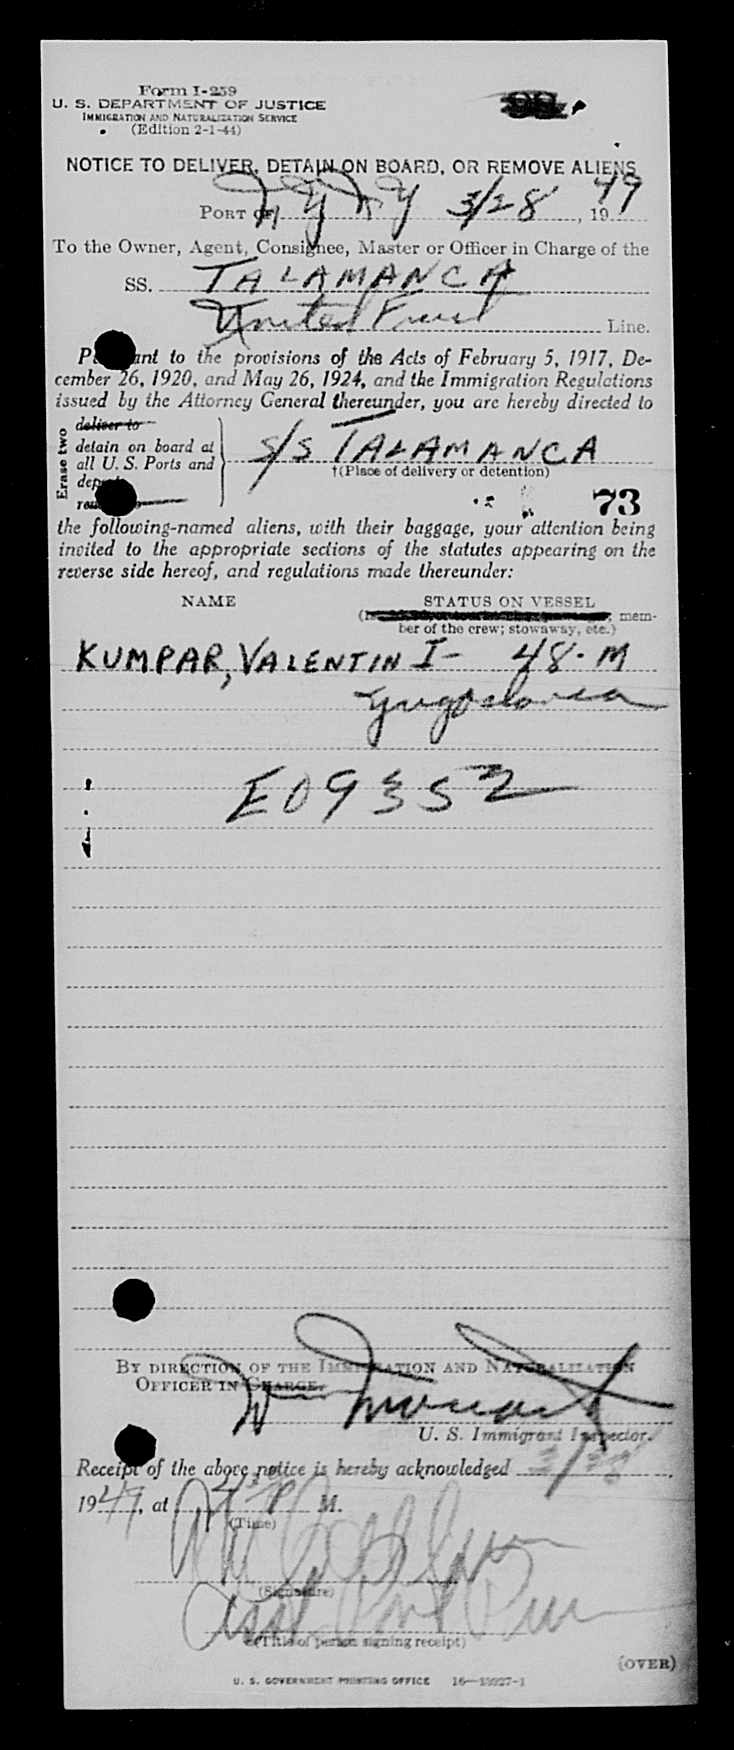 Form I-259
U. S. DEPARTMENT OF JUSTICE
IMMIGRATION AND NATURALIZATION SERVICE
(Edition 2-1-44)
NOTICE TO DELIVER, DETAIN ON BOARD, OR REMOVE ALIENS
PORT OF N Y N Y 3/28, 1949
To the Owner, Agent, Consignee, Master or Officer in Charge of the
SS. TALAMANCA
United Fruit Line.
Pursuant to the provisions of the Acts of February 5, 1917, De-
cember 26, 1920, and May 26, 1924, and the Immigration Regulations
issued by the Attorney General thereunder, you are hereby directed to
Erase two
deliver to
detain on board at
all U. S. Ports and
S/S TALAMANCA
†(Place of delivery or detention)
73
the following-named aliens, with their baggage, your attention being
invited to the appropriate sections of the statutes appearing on the
reverse side hereof, and regulations made thereunder:
NAME STATUS ON VESSEL
mem-
ber of the crew; stowaway, etc.)
KUMPAR, VALENTIN I- 48-M
Yugoslavia
E09352
BY DIRECTION OF THE IMMIGRATION AND NATURALIZATION
OFFICER IN CHARGE.
U. S. Immigrant Inspector.
Receipt of the above notice is hereby acknowledged 3/28
1949, at M.
(Time)
(Signature)
(Title of person signing receipt)
(OVER)
U. S. GOVERNMENT PRINTING OFFICE 16—13927-1